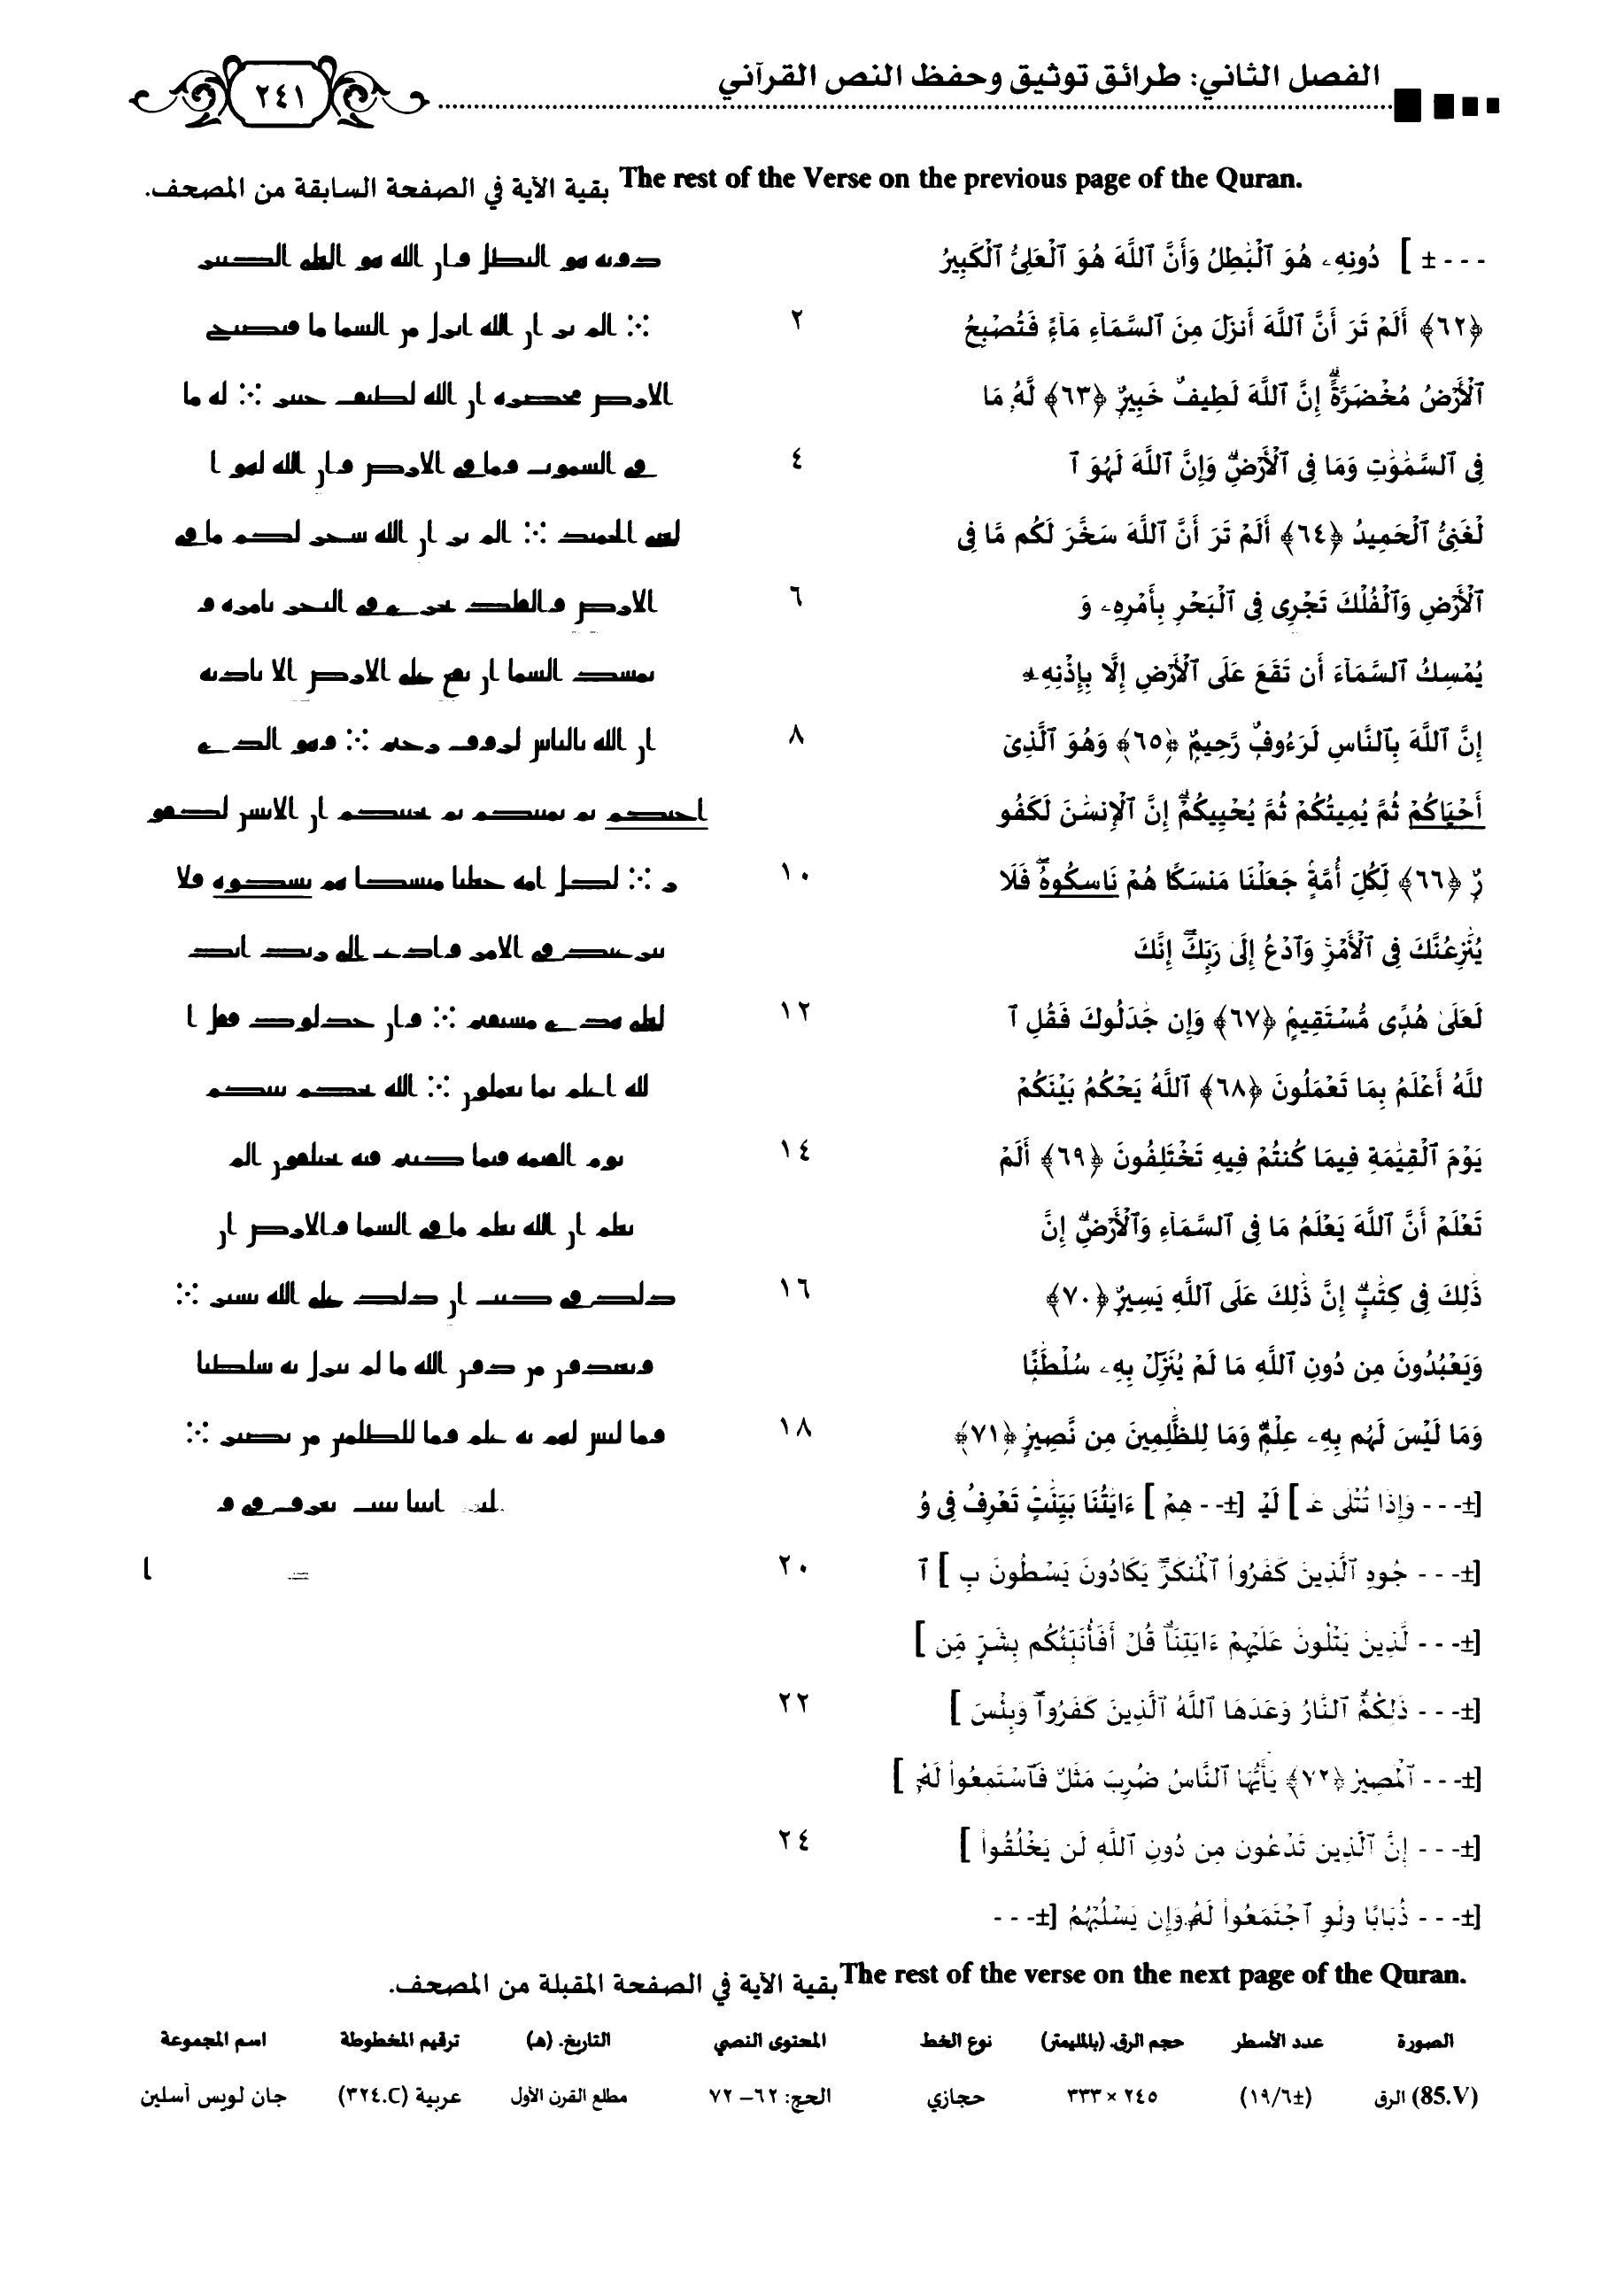 الفصل الثاني: طرائق توثيق وحفظ النص القرآني ٢٤١
The rest of the Verse on the previous page of the Quran. بقية الآية في الصفحة السابقة من المصحف.
- - - ± ] دُونِهِۦ هُوَ ٱلْبَٰطِلُ وَأَنَّ ٱللَّهَ هُوَ ٱلْعَلِىُّ ٱلْكَبِيرُ دونه هو البطل وان الله هو العلى الكبير
﴿٦٢﴾ أَلَمْ تَرَ أَنَّ ٱللَّهَ أَنزَلَ مِنَ ٱلسَّمَآءِ مَآءً فَتُصْبِحُ ٢ ⁘ الم تر ان الله انزل من السما ما فتصبح
ٱلْأَرْضُ مُخْضَرَّةً ۗ إِنَّ ٱللَّهَ لَطِيفٌ خَبِيرٌ ﴿٦٣﴾ لَّهُۥ مَا الارض مخضره ان الله لطيف خبير ⁘ له ما
فِى ٱلسَّمَٰوَٰتِ وَمَا فِى ٱلْأَرْضِ ۗ وَإِنَّ ٱللَّهَ لَهُوَ ٱ ٤ فى السموت وما فى الارض وان الله لهو ا
لْغَنِىُّ ٱلْحَمِيدُ ﴿٦٤﴾ أَلَمْ تَرَ أَنَّ ٱللَّهَ سَخَّرَ لَكُم مَّا فِى لغنى الحميد ⁘ الم تر ان الله سخر لكم ما فى
ٱلْأَرْضِ وَٱلْفُلْكَ تَجْرِى فِى ٱلْبَحْرِ بِأَمْرِهِۦ وَ ٦ الارض والفلك تجرى فى البحر بامره و
يُمْسِكُ ٱلسَّمَآءَ أَن تَقَعَ عَلَى ٱلْأَرْضِ إِلَّا بِإِذْنِهِۦٓ يمسك السما ان تقع على الارض الا باذنه
إِنَّ ٱللَّهَ بِٱلنَّاسِ لَرَءُوفٌ رَّحِيمٌ ﴿٦٥﴾ وَهُوَ ٱلَّذِىٓ ٨ ان الله بالناس لروف رحيم ⁘ وهو الذى
أَحْيَاكُمْ ثُمَّ يُمِيتُكُمْ ثُمَّ يُحْيِيكُمْ ۗ إِنَّ ٱلْإِنسَٰنَ لَكَفُو احييكم ثم يميتكم ثم يحييكم ان الانسن لكفو
رٌ ﴿٦٦﴾ لِّكُلِّ أُمَّةٍ جَعَلْنَا مَنسَكًا هُمْ نَاسِكُوهُ ۖ فَلَا ١٠ ر ⁘ لكل امه جعلنا منسكا هم نسكوه فلا
يُنَٰزِعُنَّكَ فِى ٱلْأَمْرِ ۚ وَٱدْعُ إِلَىٰ رَبِّكَ ۖ إِنَّكَ ينزعنك فى الامر وادع الى ربك انك
لَعَلَىٰ هُدًى مُّسْتَقِيمٍ ﴿٦٧﴾ وَإِن جَٰدَلُوكَ فَقُلِ ٱ ١٢ لعلى هدى مستقيم ⁘ وان جدلوك فقل ا
للَّهُ أَعْلَمُ بِمَا تَعْمَلُونَ ﴿٦٨﴾ ٱللَّهُ يَحْكُمُ بَيْنَكُمْ لله اعلم بما تعملون ⁘ الله يحكم بينكم
يَوْمَ ٱلْقِيَٰمَةِ فِيمَا كُنتُمْ فِيهِ تَخْتَلِفُونَ ﴿٦٩﴾ أَلَمْ ١٤ يوم القيمه فيما كنتم فيه تختلفون الم
تَعْلَمْ أَنَّ ٱللَّهَ يَعْلَمُ مَا فِى ٱلسَّمَآءِ وَٱلْأَرْضِ ۗ إِنَّ تعلم ان الله يعلم ما فى السما والارض ان
ذَٰلِكَ فِى كِتَٰبٍ ۚ إِنَّ ذَٰلِكَ عَلَى ٱللَّهِ يَسِيرٌ ﴿٧٠﴾ ١٦ ذلك فى كتب ان ذلك على الله يسير ⁘
وَيَعْبُدُونَ مِن دُونِ ٱللَّهِ مَا لَمْ يُنَزِّلْ بِهِۦ سُلْطَٰنًا ويعبدون من دون الله ما لم ينزل به سلطنا
وَمَا لَيْسَ لَهُم بِهِۦ عِلْمٌ ۗ وَمَا لِلظَّٰلِمِينَ مِن نَّصِيرٍ ﴿٧١﴾ ١٨ وما ليس لهم به علم وما للظلمين من نصير ⁘
[±- - - وَإِذَا تُتْلَىٰ عَـ ] لَيْـ [±- - هِمْ ] ءَايَٰتُنَا بَيِّنَٰتٍ تَعْرِفُ فِى وُ ليـ ايتنا بينت تعرف فى و
[±- - - جُوهِ ٱلَّذِينَ كَفَرُوا۟ ٱلْمُنكَرَ ۖ يَكَادُونَ يَسْطُونَ بِـ ] ٱ ٢٠ ا
[±- - - لَّذِينَ يَتْلُونَ عَلَيْهِمْ ءَايَٰتِنَا ۗ قُلْ أَفَأُنَبِّئُكُم بِشَرٍّ مِّن ]
[±- - - ذَٰلِكُمُ ۗ ٱلنَّارُ وَعَدَهَا ٱللَّهُ ٱلَّذِينَ كَفَرُوا۟ ۖ وَبِئْسَ ] ٢٢
[±- - - ٱلْمَصِيرُ ﴿٧٢﴾ يَٰٓأَيُّهَا ٱلنَّاسُ ضُرِبَ مَثَلٌ فَٱسْتَمِعُوا۟ لَهُۥٓ ]
[±- - - إِنَّ ٱلَّذِينَ تَدْعُونَ مِن دُونِ ٱللَّهِ لَن يَخْلُقُوا۟ ] ٢٤
[±- - - ذُبَابًا وَلَوِ ٱجْتَمَعُوا۟ لَهُۥ ۖ وَإِن يَسْلُبْهُمُ [±- - -
The rest of the verse on the next page of the Quran. بقية الآية في الصفحة المقبلة من المصحف.
الصورة عدد الأسطر حجم الرق. (بالمليمتر) نوع الخط المحتوى النصي التاريخ. (هـ) ترقيم المخطوطة اسم المجموعة
(85.V) الرق (±١٩/٦) ٢٤٥ × ٣٣٣ حجازي الحج: ٦٢– ٧٢ مطلع القرن الأول عربية (٣٢٤.C) جان لويس آسلين